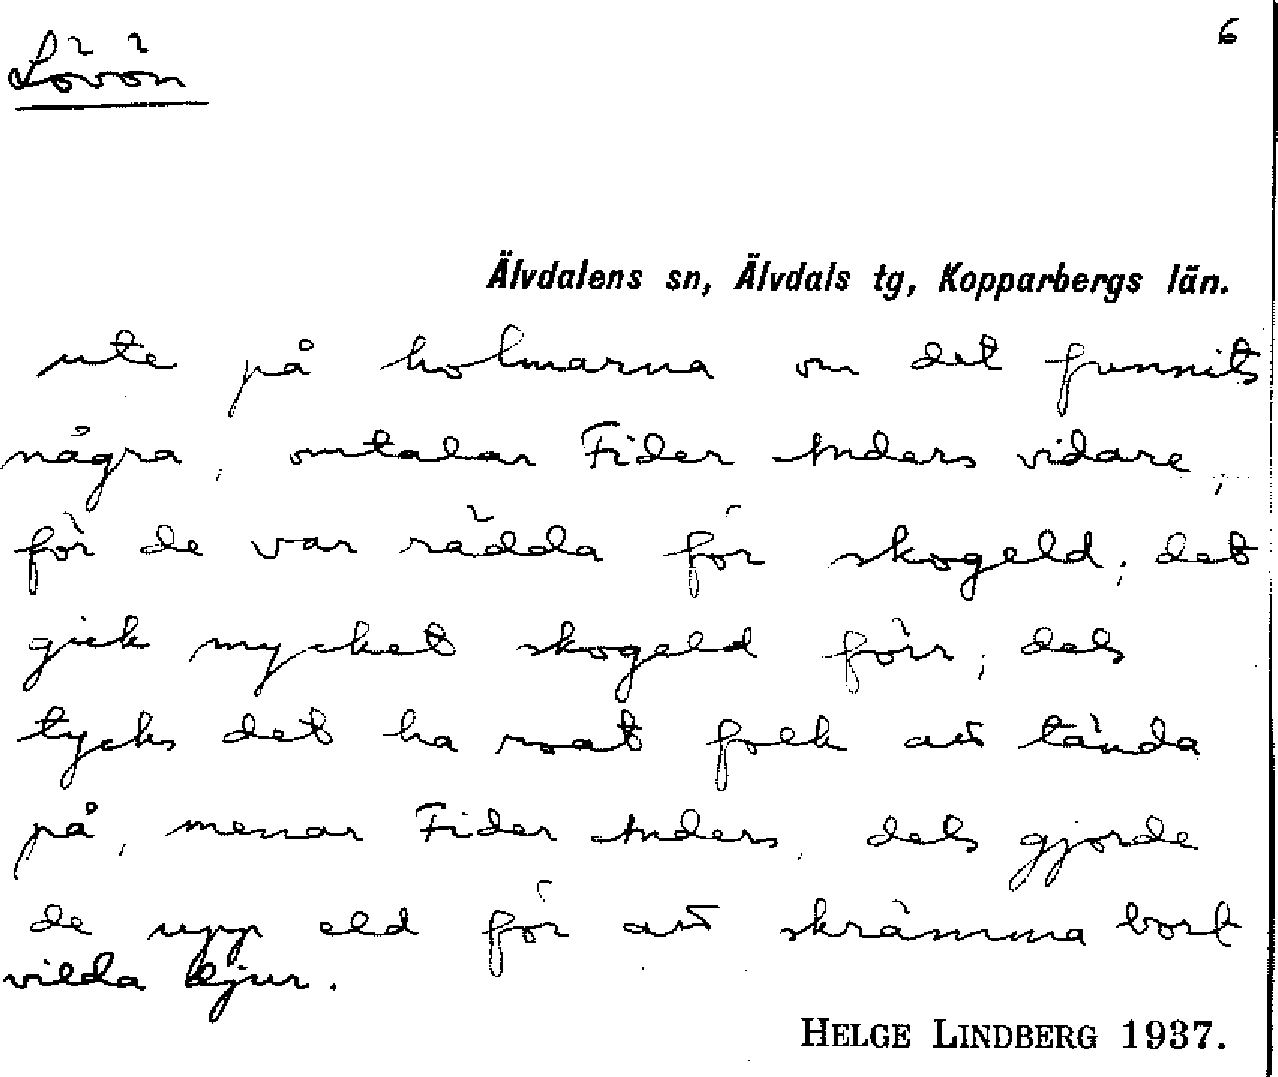 Lövön
6
Älvdalens sn, Älvdals tg, Kopparbergs län.
ute på holmarna om det funnits
några, omtalar Fider Anders vidare,
för de var rädda för skogeld; det
gick mycket skogeld förr; dels
tycks det ha roat folk att tända
på, menar Fider Anders, dels gjorde
de upp eld för att skrämma bort
vilda djur.
HELGE LINDBERG 1937.